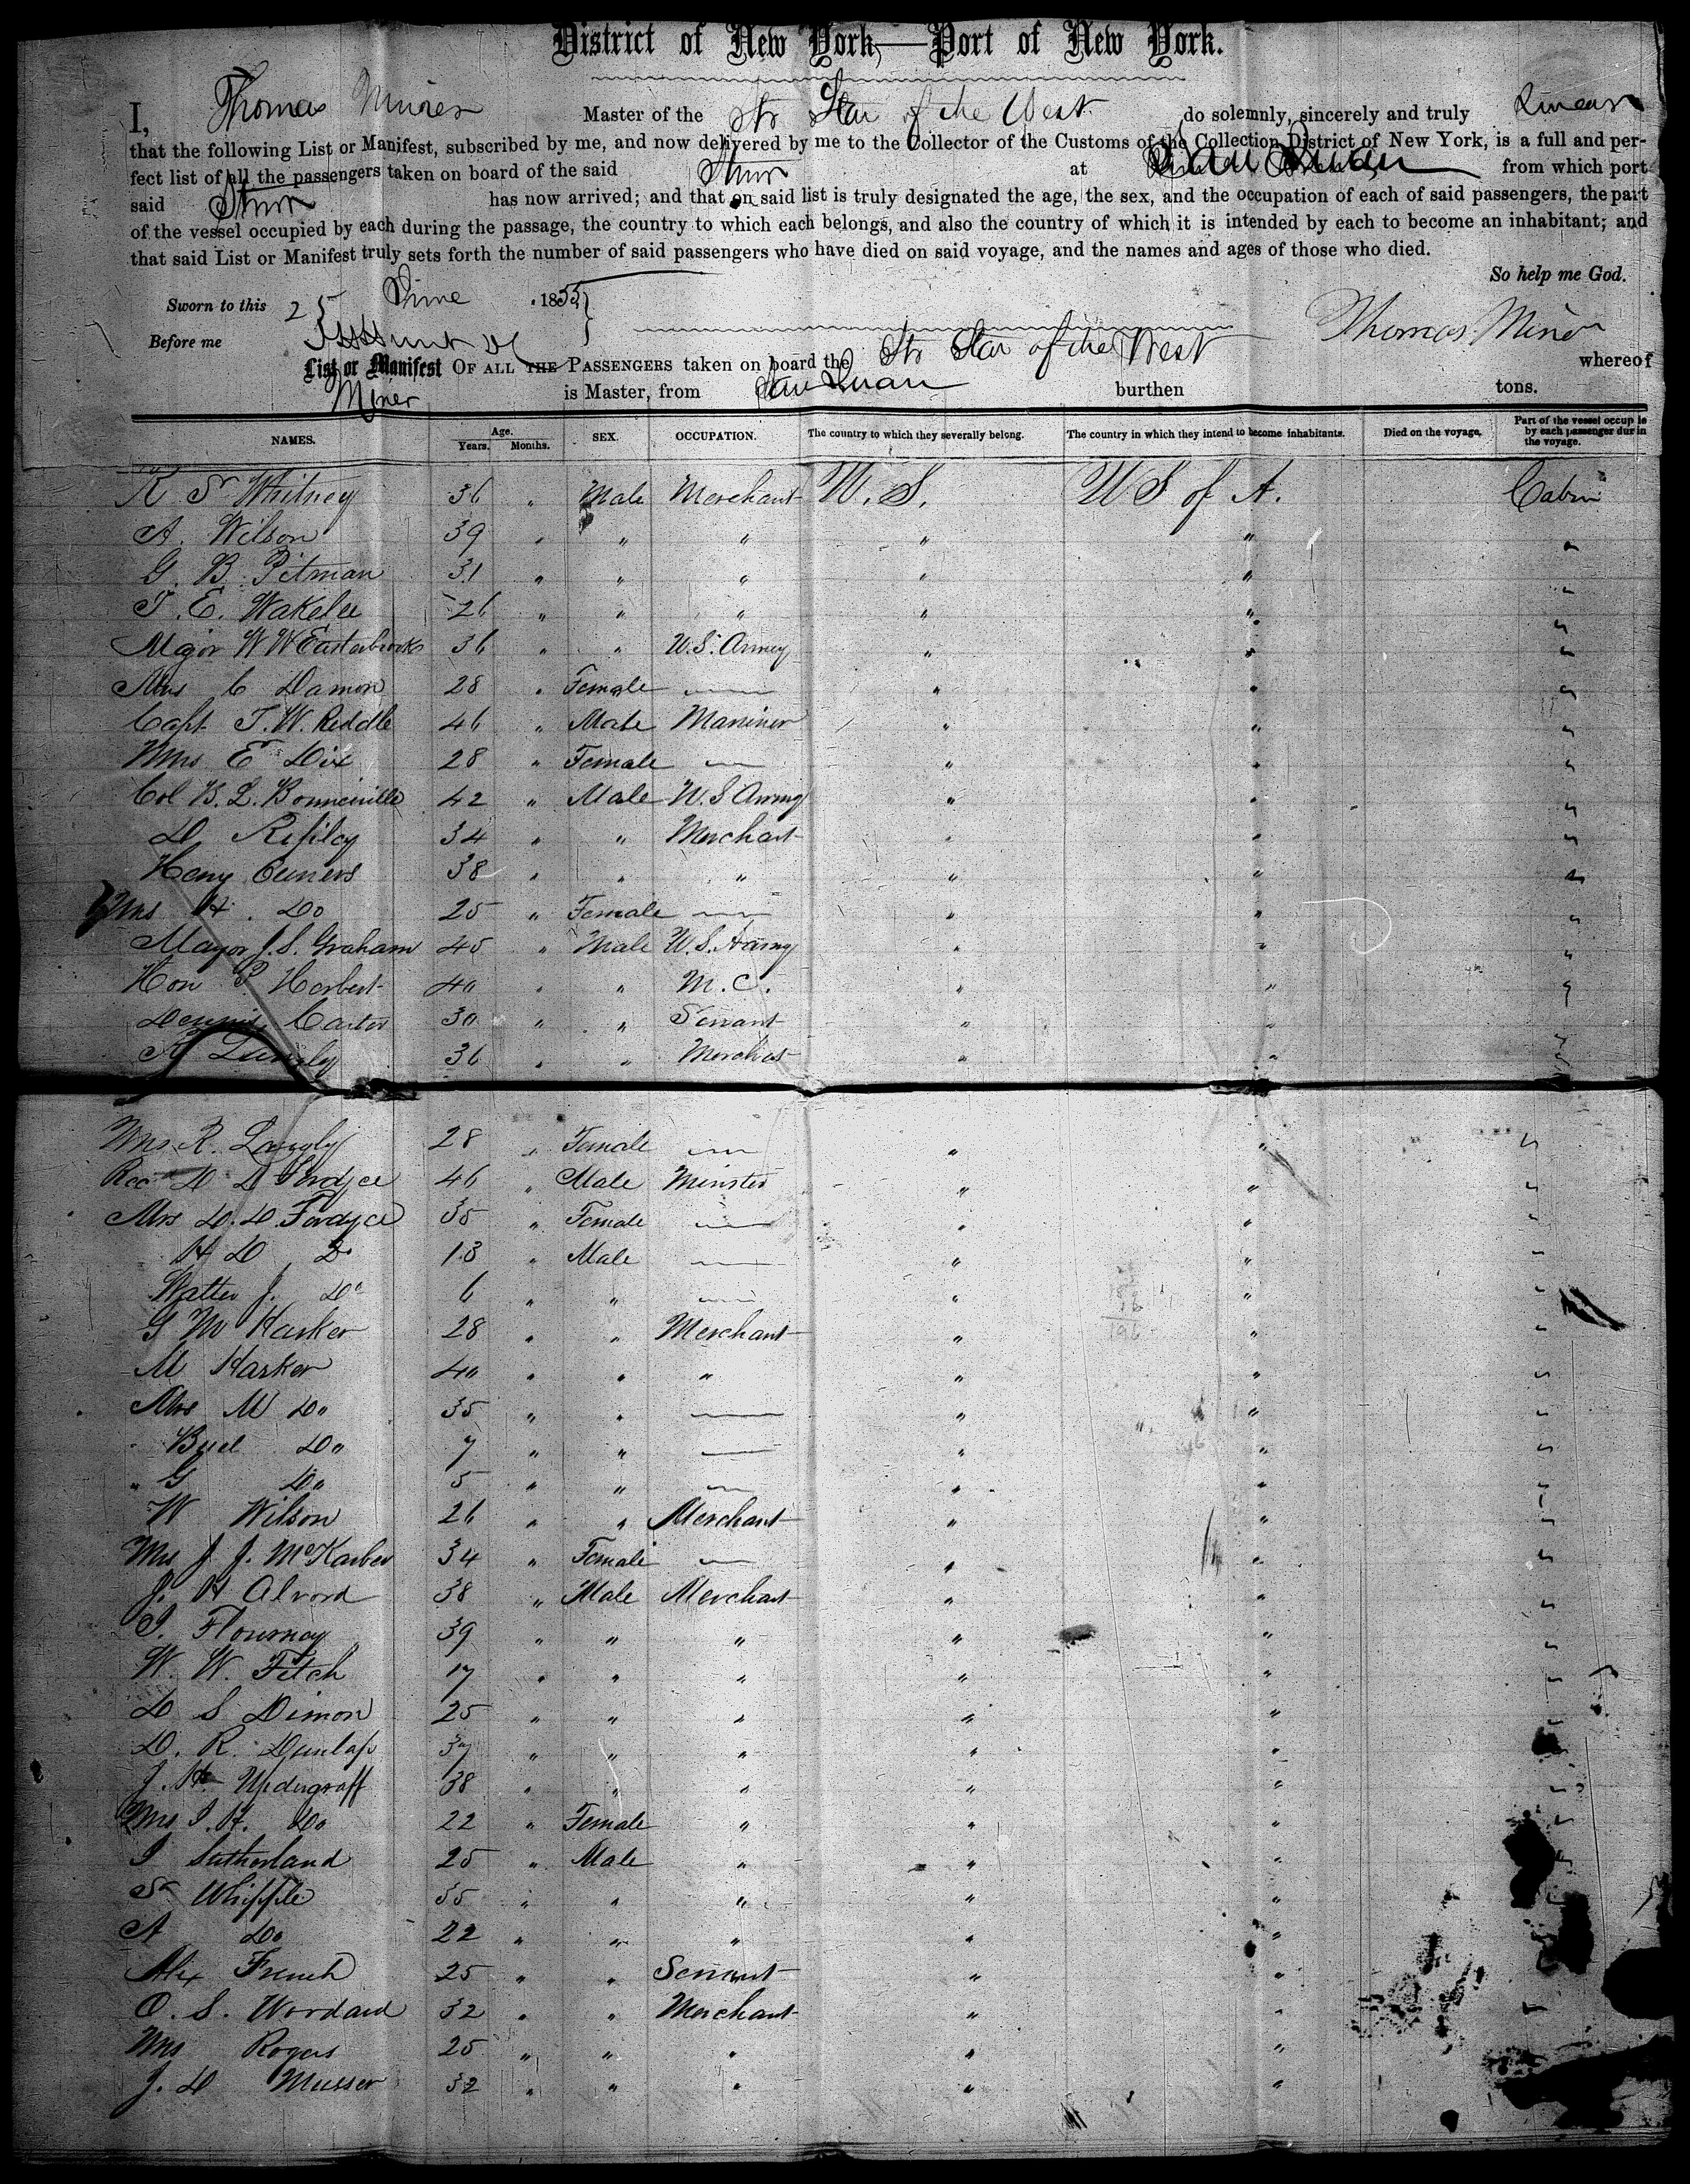 District of New York,—Port of New York.
I, Thomas Miner Master of the Str Star of the West do solemnly, sincerely and truly swear
that the following List or Manifest, subscribed by me, and now delivered by me to the Collector of the Customs of the Collection District of New York, is a full and per-
fect list of all the passengers taken on board of the said Stmr at San Juan from which port
said Stmr has now arrived; and that on said list is truly designated the age, the sex, and the occupation of each of said passengers, the part
of the vessel occupied by each during the passage, the country to which each belongs, and also the country of which it is intended by each to become an inhabitant; and
that said List or Manifest truly sets forth the number of said passengers who have died on said voyage, and the names and ages of those who died.
So help me God.
Sworn to this 25 June 1855
Thomas Miner
Before me
List or Manifest OF ALL THE PASSENGERS taken on board the Str Star of the West whereof
Miner is Master, from San Juan burthen tons.
NAMES. Age. Years. Months. SEX. OCCUPATION. The country to which they severally belong. The country in which they intend to become inhabitants. Died on the voyage. Part of the vessel occup ie by each passenger durin the voyage.
Whitney 36 " Male Merchant U.S. U S of A. Cabin
A. Wilson 39 " " " " " "
G. B. Pitman 31 " " " " " "
T. E. Wakelee 26 " " " " " "
Major W W Easterbrooks 36 " " U.S. Army " " "
Mrs C Damon 28 " Female — " " "
Capt T. W. Riddle 46 " Male Mariner " " "
Mrs E Dix 28 " Female — " " "
Col B. L. Bonneville 42 " Male U.S Army " " "
D Ripley 34 " " Merchant " " "
Heny 38 " " " " " "
Mrs H. Do 25 " Female — " " "
Mayor J. S. Graham 45 " Male U.S. Army " " "
Hon P Herbert 40 " " M. C. " " "
Dennis Carter 30 " " Servant " " "
R Langly 36 " " Merchat " " "
Mrs R. Langly 28 " Female — " " "
Rev D D Fordyce 46 " Male Minster " " "
Mrs D. D. Fordyce 35 " Female — " " "
H D Do 13 " Male — " " "
Walter J. Do 6 " " — " " "
G M Harker 28 " " Merchant " " "
M Harker 40 " " " " " "
Mrs M Do 35 " " — " " "
Buel Do 7 " " — " " "
" G Do 5 " " — " " "
W Wilson 26 " " Merchant " " "
Mrs J J. McKarber 34 " Female — " " "
J. H Alvord 38 " Male Merchant " " "
I. Flournoy 39 " " " " " "
W. W. Fitch 17 " " " " " "
D S Dimon 25 " " " " " "
D. R. Dunlap 37 " " " " " "
J. H. Updegraff 38 " " " " " "
Mrs I. H. Do 22 " Female " " " "
I Sutherland 25 " Male " " " "
Whipple 35 " " " " " "
A Do 22 " " " " " "
Alex French 25 " " Servant " " "
O. S. Wordard 32 " " Merchant " " "
Mrs Rogers 25 " " " " "
J. D Musser 32 " " " " "